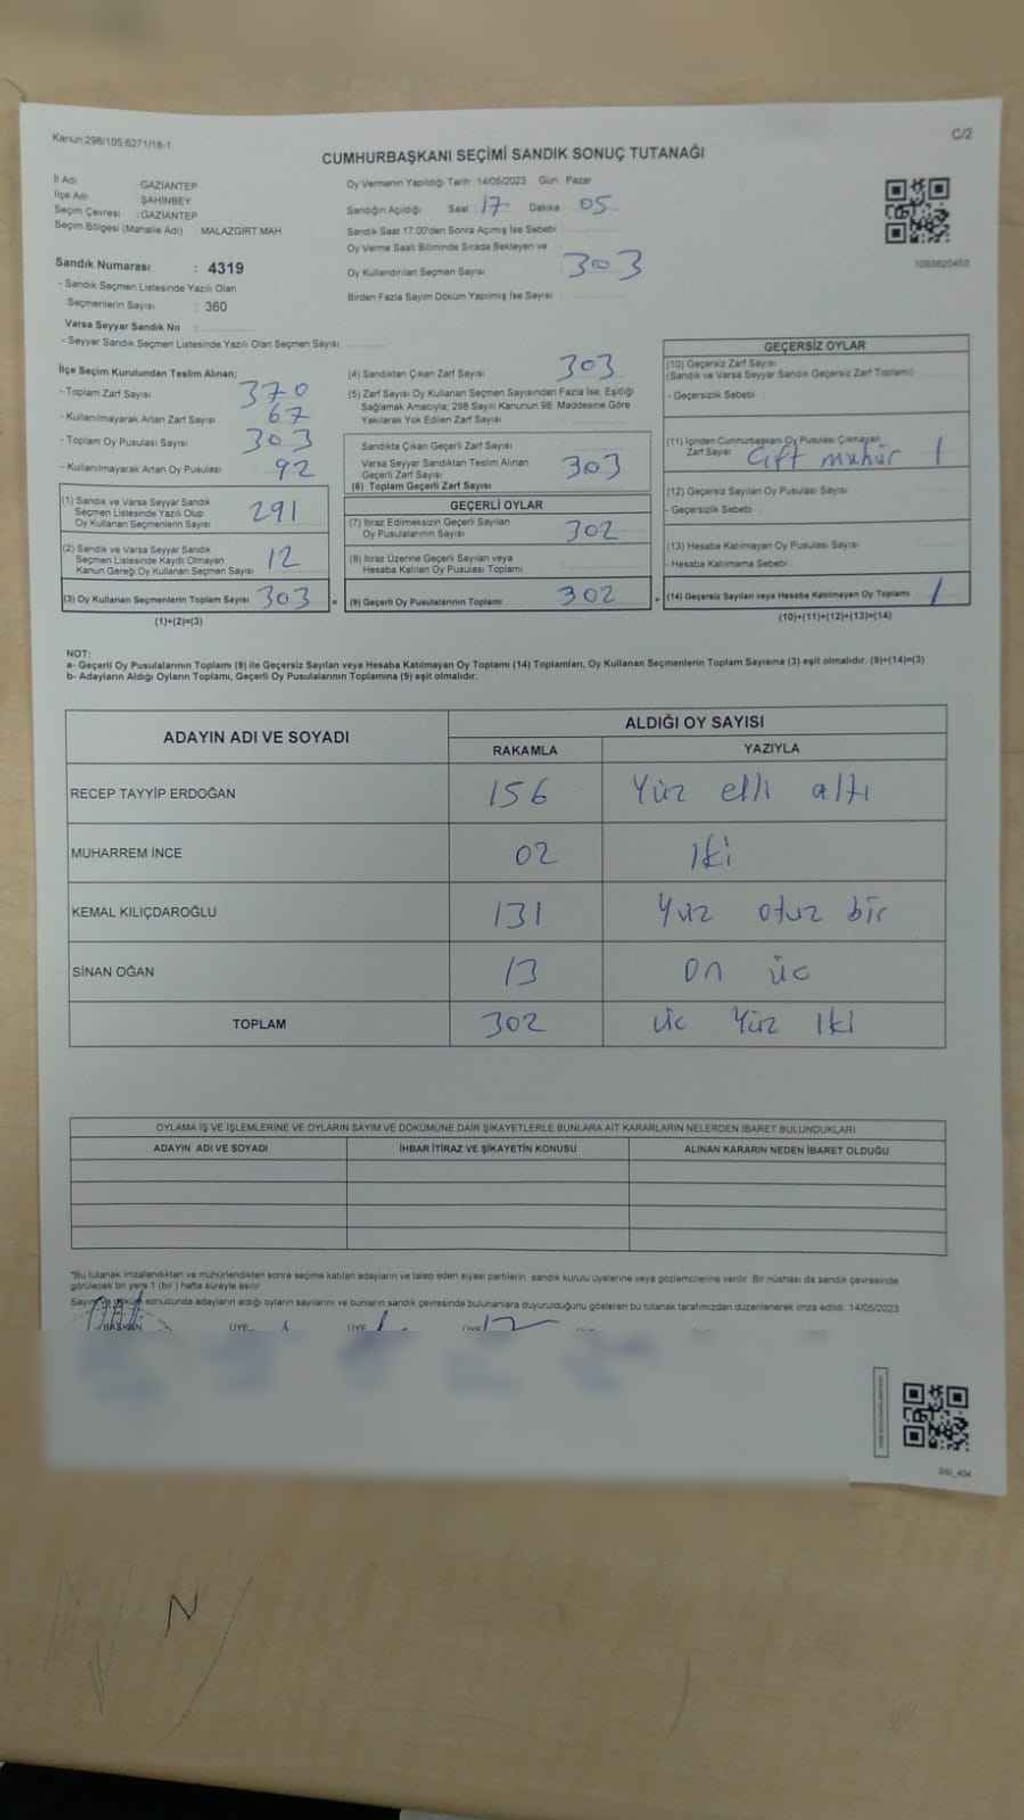 Kanun:298/105-6271/18-1
C/2
CUMHURBAŞKANI SEÇİMİ SANDIK SONUÇ TUTANAĞI
İl Adı GAZİANTEP
İlçe Adı ŞAHİNBEY
Seçim Çevresi : GAZİANTEP
Seçim Bölgesi (Mahalle Adı) MALAZGİRT MAH
Sandık Numarası : 4319
- Sandık Seçmen Listesinde Yazılı Olan
Seçmenlerin Sayısı : 360
Varsa Seyyar Sandık No :
- Seyyar Sandık Seçmen Listesinde Yazılı Olan Seçmen Sayısı
Oy Vermenin Yapıldığı Tarih: 14/05/2023 Gün: Pazar
Sandığın Açıldığı Saat 17 Dakika 05
Sandık Saat 17:00'den Sonra Açılmış İse Sebebi
Oy Verme Saati Bitiminde Sırada Bekleyen ve
Oy Kullandırılan Seçmen Sayısı 303
Birden Fazla Sayım Döküm Yapılmış İse Sayısı
İlçe Seçim Kurulundan Teslim Alınan;
- Toplam Zarf Sayısı 370
- Kullanılmayarak Artan Zarf Sayısı 67
- Toplam Oy Pusulası Sayısı 303
- Kullanılmayarak Artan Oy Pusulası 92
(1) Sandık ve Varsa Seyyar Sandık
Seçmen Listesinde Yazılı Olup
Oy Kullanan Seçmenlerin Sayısı 291
(2) Sandık ve Varsa Seyyar Sandık
Seçmen Listesinde Kayıtlı Olmayan
Kanun Gereği Oy Kullanan Seçmen Sayısı 12
(3) Oy Kullanan Seçmenlerin Toplam Sayısı 303
(1)+(2)=(3)
=
(4) Sandıktan Çıkan Zarf Sayısı 303
(5) Zarf Sayısı Oy Kullanan Seçmen Sayısından Fazla İse, Eşitliği
Sağlamak Amacıyla; 298 Sayılı Kanunun 98. Maddesine Göre
Yakılarak Yok Edilen Zarf Sayısı
Sandıkta Çıkan Geçerli Zarf Sayısı
Varsa Seyyar Sandıktan Teslim Alınan
Geçerli Zarf Sayısı 303
(6) Toplam Geçerli Zarf Sayısı
GEÇERLİ OYLAR
(7) İtiraz Edilmeksizin Geçerli Sayılan
Oy Pusulalarının Sayısı 302
(8) İtiraz Üzerine Geçerli Sayılan veya
Hesaba Katılan Oy Pusulası Toplamı
(9) Geçerli Oy Pusulalarının Toplamı 302
+
GEÇERSİZ OYLAR
(10) Geçersiz Zarf Sayısı
(Sandık ve Varsa Seyyar Sandık Geçersiz Zarf Toplamı)
- Geçersizlik Sebebi
(11) İçinden Cumhurbaşkanı Oy Pusulası Çıkmayan
Zarf Sayısı Çift mühür 1
(12) Geçersiz Sayılan Oy Pusulası Sayısı
- Geçersizlik Sebebi
(13) Hesaba Katılmayan Oy Pusulası Sayısı
- Hesaba Katılmama Sebebi
(14) Geçersiz Sayılan veya Hesaba Katılmayan Oy Toplamı 1
(10)+(11)+(12)+(13)=(14)
NOT:
a- Geçerli Oy Pusulalarının Toplamı (9) ile Geçersiz Sayılan veya Hesaba Katılmayan Oy Toplamı (14) Toplamları, Oy Kullanan Seçmenlerin Toplam Sayısına (3) eşit olmalıdır. (9)+(14)=(3)
b- Adayların Aldığı Oyların Toplamı, Geçerli Oy Pusulalarının Toplamına (9) eşit olmalıdır.
ADAYIN ADI VE SOYADI ALDIĞI OY SAYISI
RAKAMLA YAZIYLA
RECEP TAYYİP ERDOĞAN 156 Yüz elli altı
MUHARREM İNCE 02 Iki
KEMAL KILIÇDAROĞLU 131 Yüz otuz bir
SİNAN OĞAN 13 on üc
TOPLAM 302 üc Yüz Iki
OYLAMA İŞ VE İŞLEMLERİNE VE OYLARIN SAYIM VE DÖKÜMÜNE DAİR ŞİKAYETLERLE BUNLARA AİT KARARLARIN NELERDEN İBARET BULUNDUKLARI
ADAYIN ADI VE SOYADI İHBAR İTİRAZ VE ŞİKAYETİN KONUSU ALINAN KARARIN NEDEN İBARET OLDUĞU
*Bu tutanak imzalandıktan ve mühürlendikten sonra seçime katılan adayların ve talep eden siyasi partilerin, sandık kurulu üyelerine veya gözlemcilerine verilir. Bir nüshası da sandık çevresinde
görülecek bir yere 1 (bir) hafta süreyle asılır.
sonucunda adayların aldığı oyların sayılarını ve bunların sandık çevresinde bulunanlara duyurulduğunu gösteren bu tutanak tarafımızdan düzenlenerek imza edildi. 14/05/2023
BAŞKAN ÜYE ÜYE
N